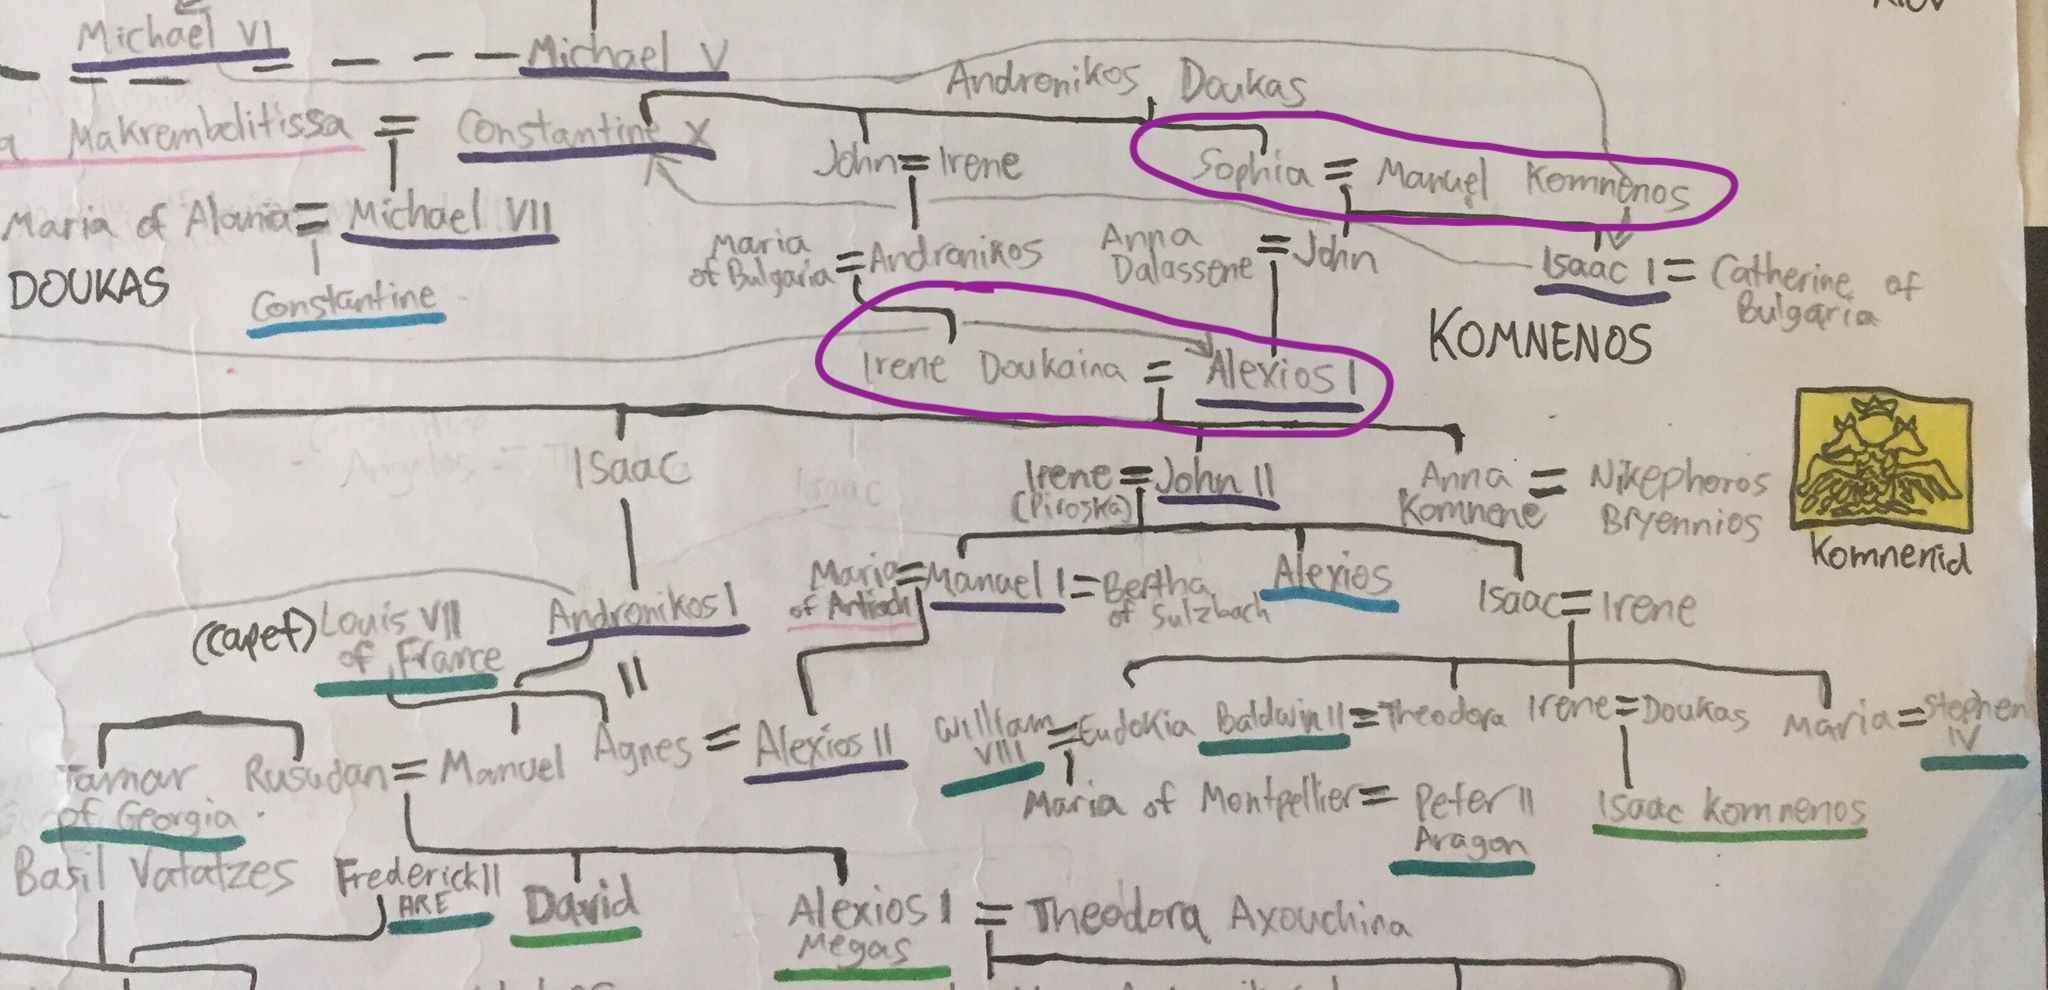 Michael VI
Michael V
Andronikos Doukas
Makrembolitissa = Constantine X
John = Irene
Sophia = Manuel Komnenos
Maria of Alania = Michael VII
Maria
of Bulgaria = Andronikos
Anna
Dalassene = John
Isaac I = Catherine of
Bulgaria
DOUKAS
Constantine
KOMNENOS
Irene Doukaina = Alexios I
Isaac
Irene = John II
(Piroska)
Anna
Komnene = Nikephoros
Bryennios
Komnenid
Isaac
Maria = Manuel I = Bertha
of Antioch
of Sulzbach
Alexios
Isaac = Irene
(Capet) Louis VII
of France
Andronikos I
Tamar
of Georgia
Rusudan = Manuel
Agnes = Alexios II
William = Eudokia
VIII
Baldwin II = Theodora
Irene = Doukas
Maria = Stephen
IV
Maria of Montpellier = Peter II
Aragon
Isaac Komnenos
Basil Vatatzes
Frederick II
ARE
David
Alexios I = Theodora Axouchina
Megas